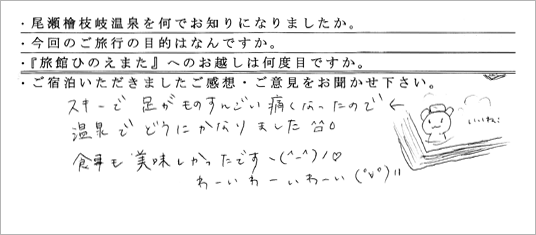 ・尾瀬檜枝岐温泉を何でお知りになりましたか。
・今回のご旅行の目的はなんですか。
・『旅館ひのえまた』へのお越しは何度目ですか。
・ご宿泊いただきましたご感想・ご意見をお聞かせ下さい。
スキーで足がものすんごい痛くなったので←
温泉でどうにかなりました^^。
いいね!
食事も美味しかったですヽ(^-^)ノ♡
わーいわーいわーい(°v°)!!